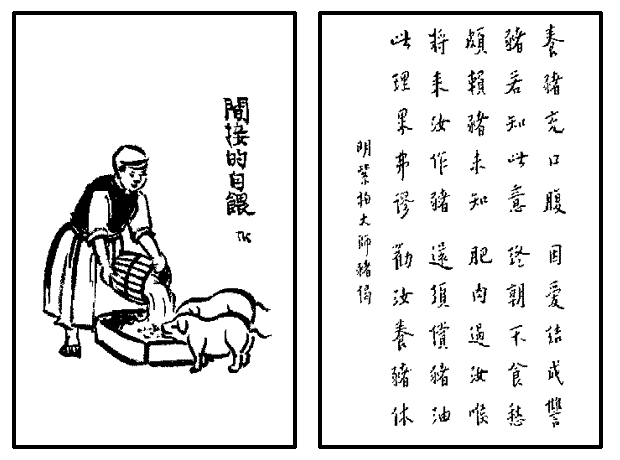 間接的自餵
TK
養豬充口腹 因愛結成讐
豬若知此意 終朝不食愁
頗賴豬未知 肥肉過汝喉
將來汝作豬 還須償豬油
此理果弗謬 勸汝養豬休
明紫柏大師豬偈